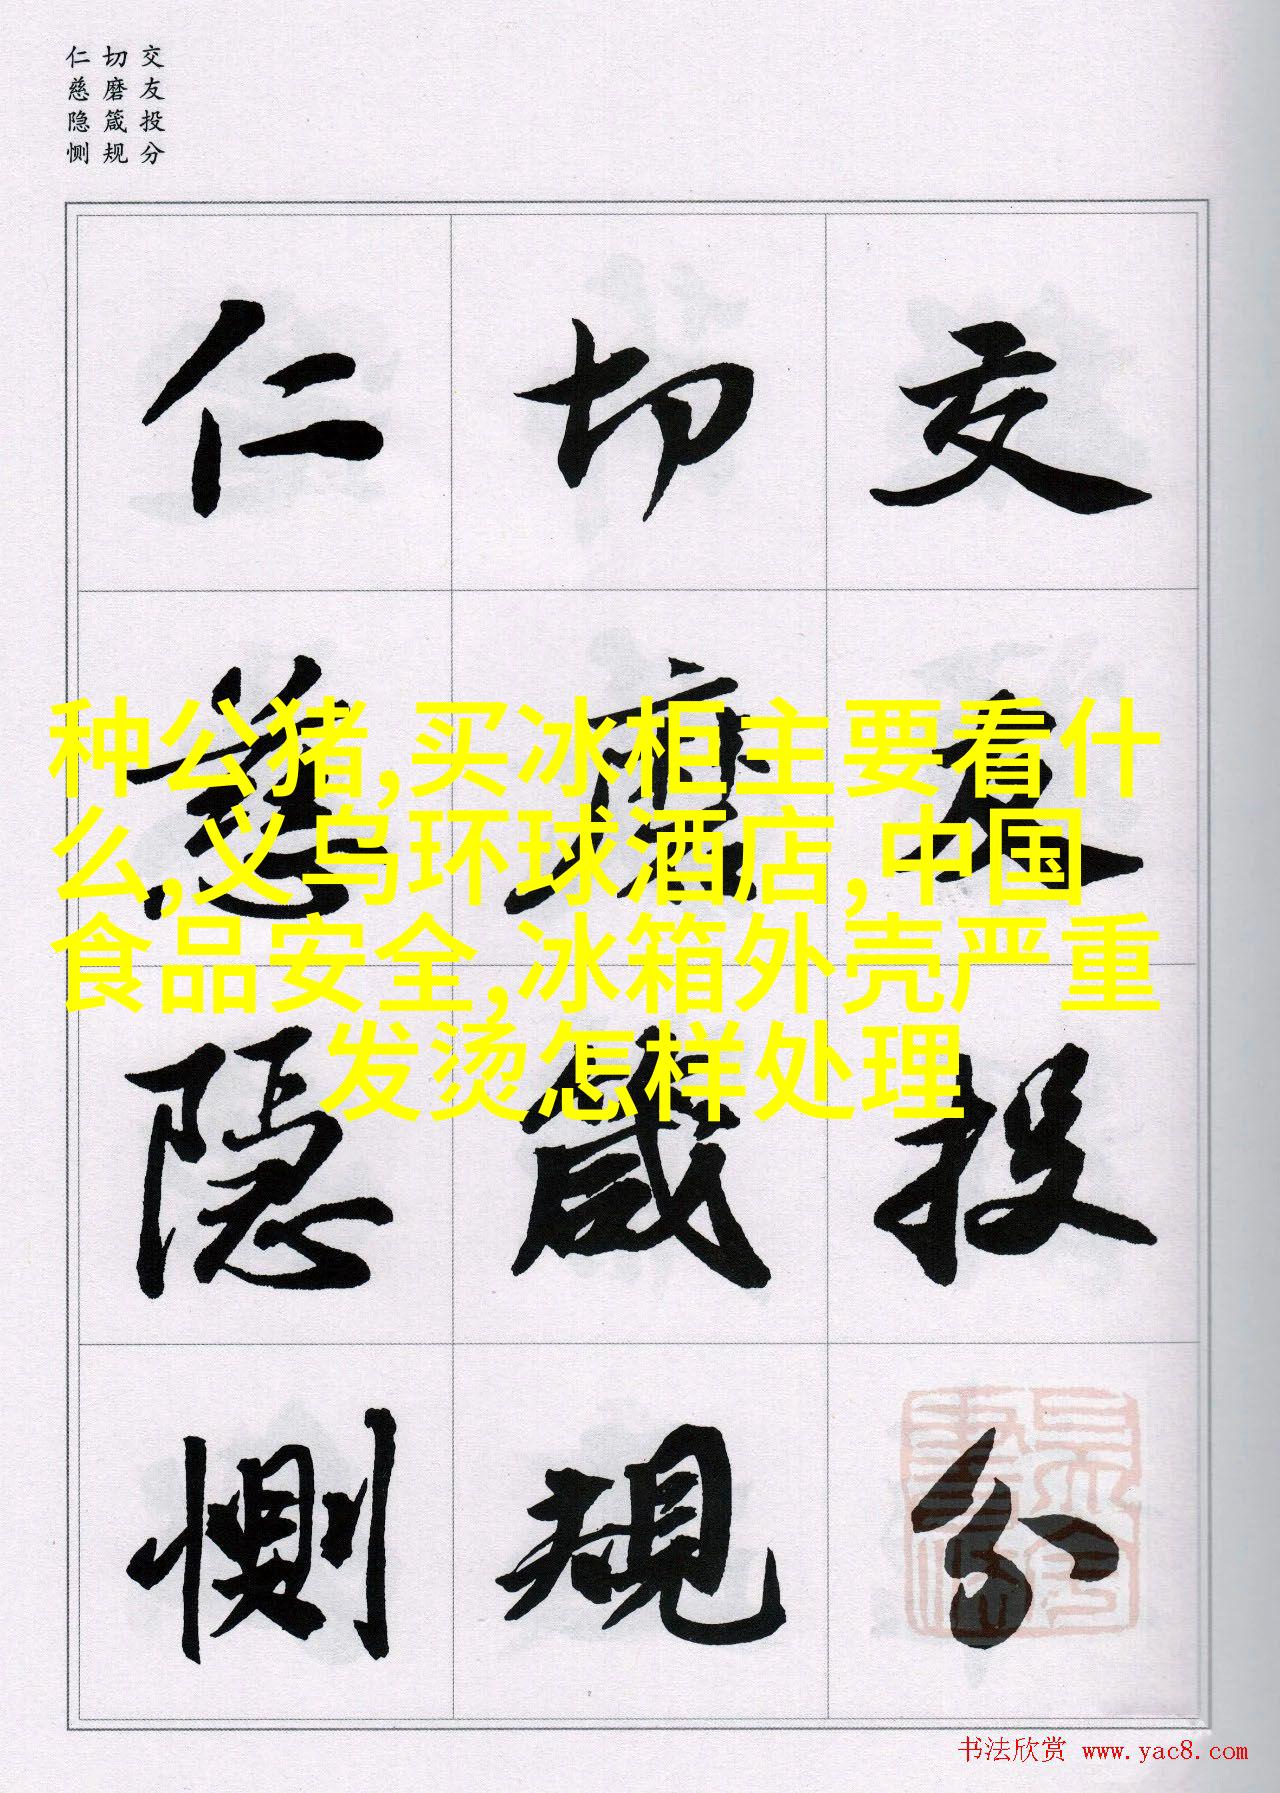 交友投分
切磨箴规
仁慈隐恻
交友投分
切磨箴规
仁慈隐恻
种公猪,买冰柜主要看什
么,义乌环球酒店,中国
食品安全,冰箱外壳严重
发烫怎样处理
书法欣赏 www.yac8.com